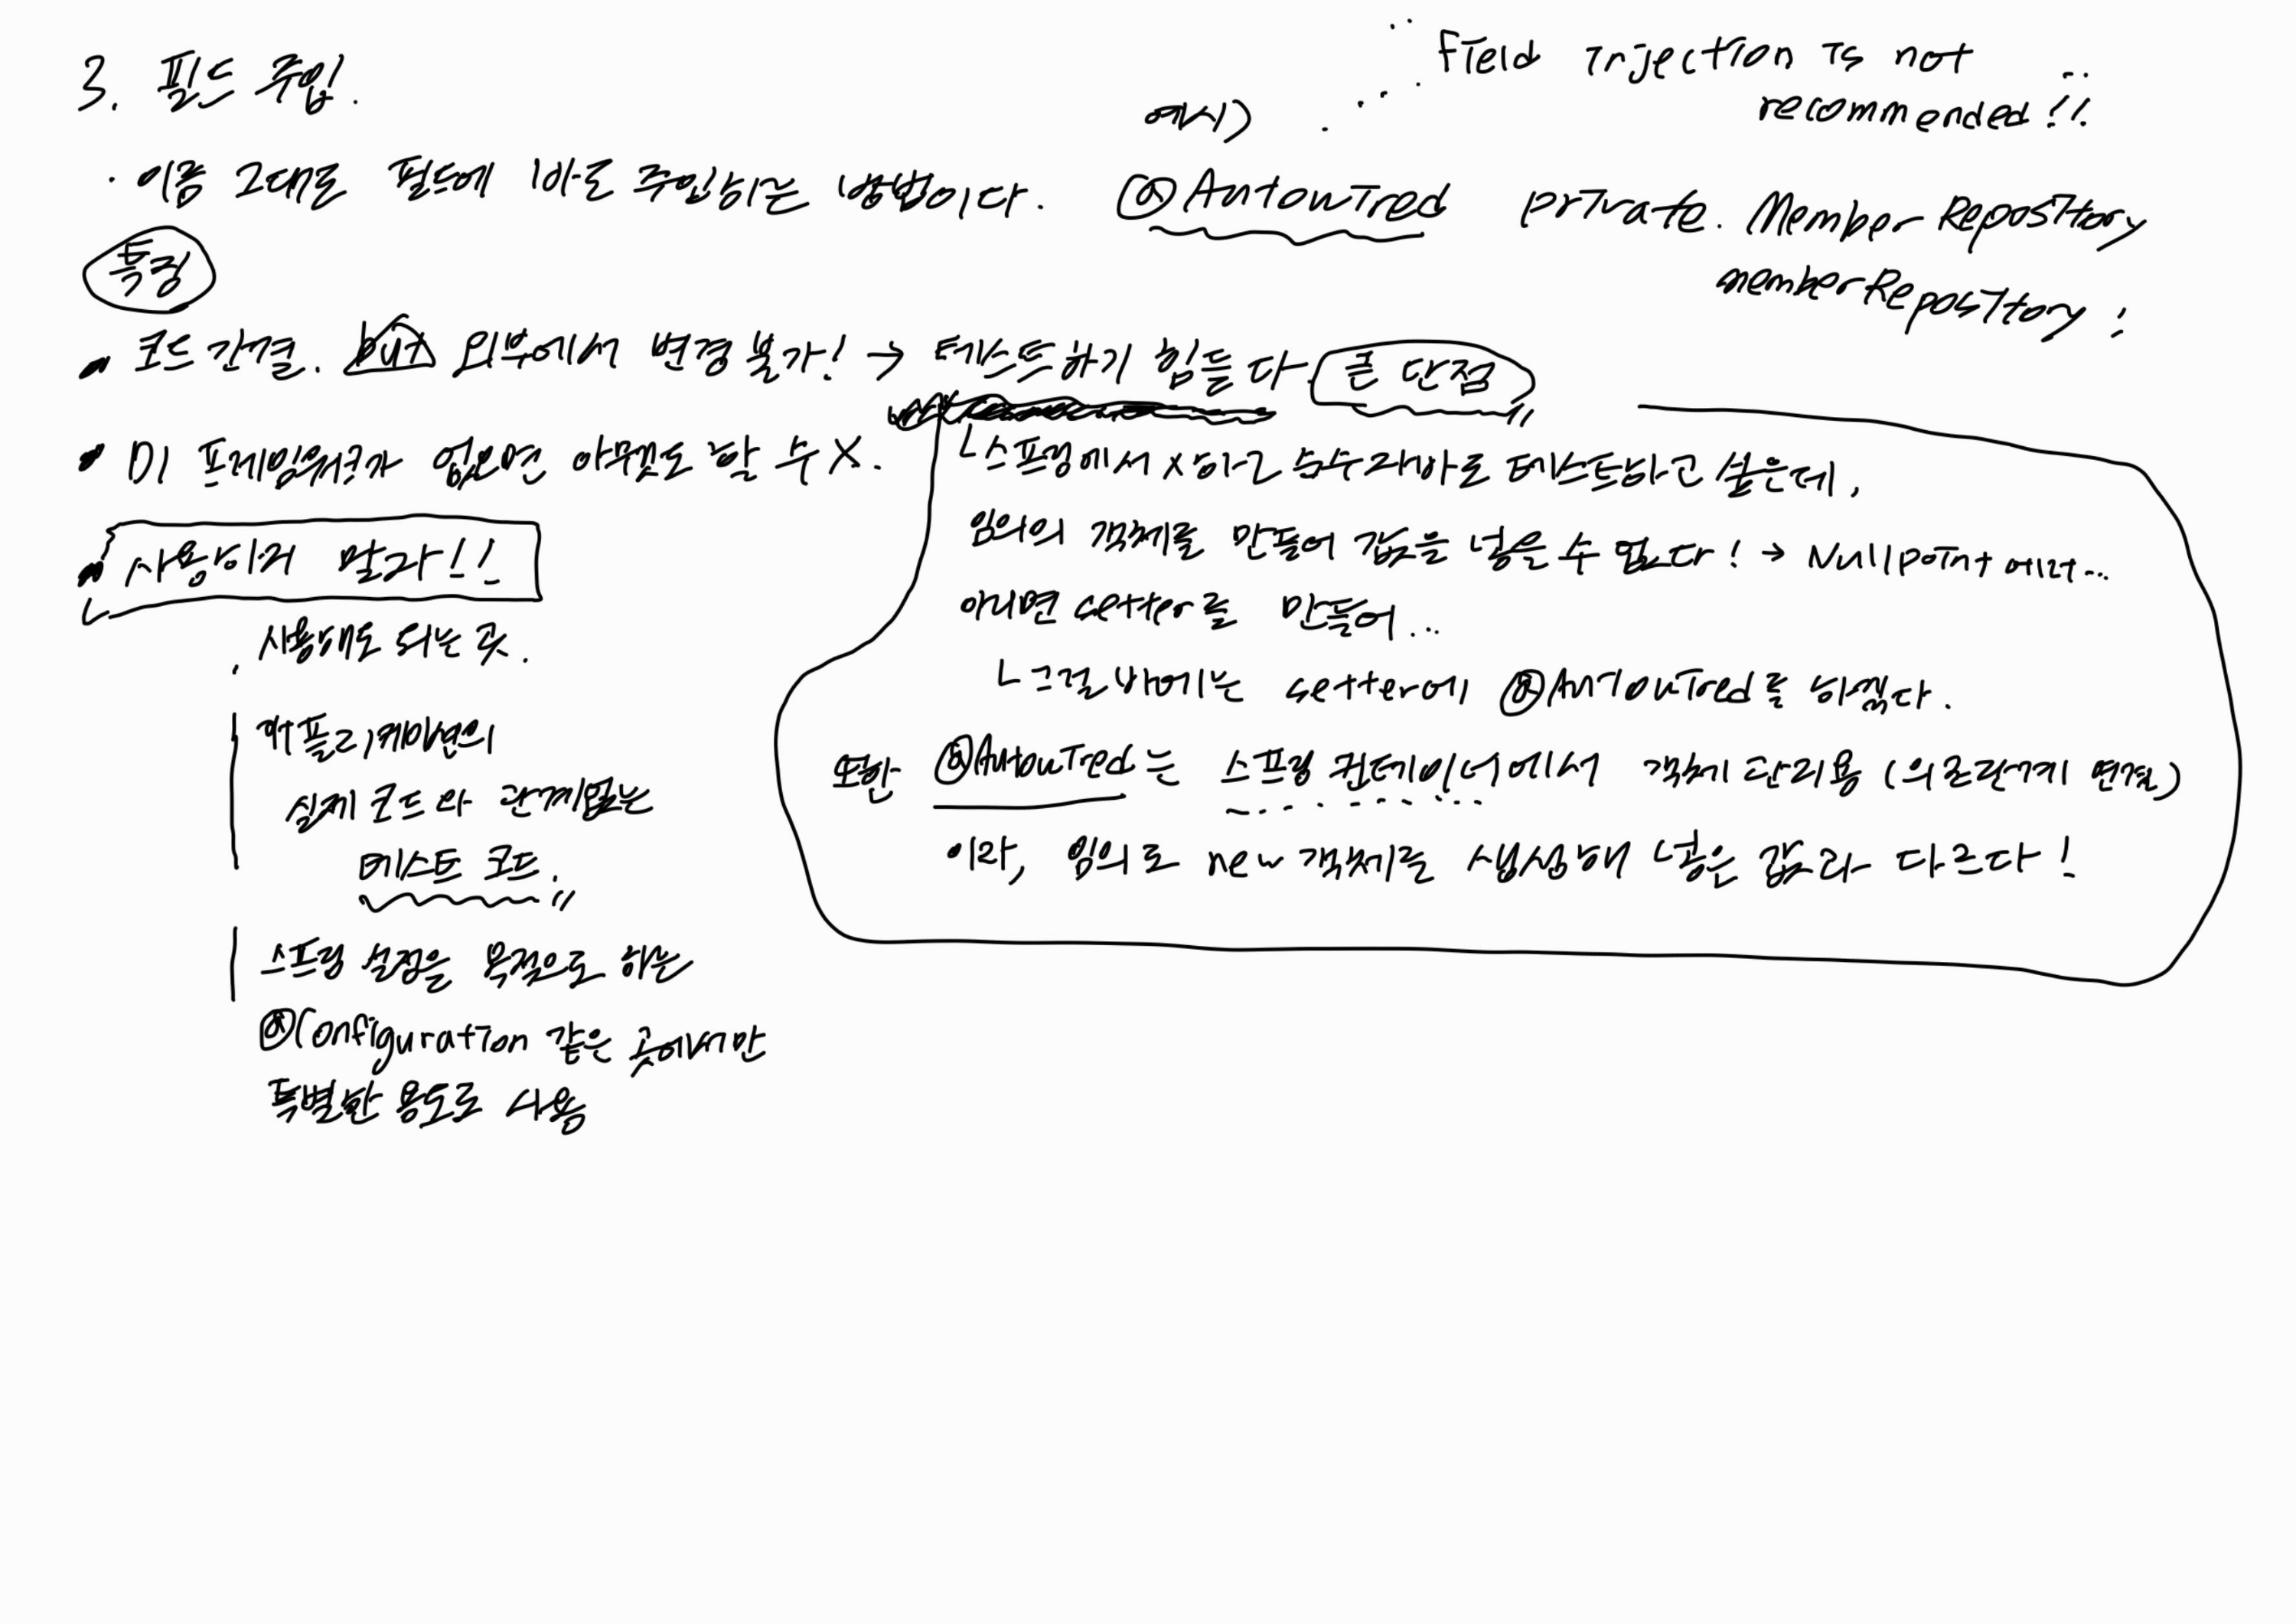 3. 필드 주입.
· 이름 그대로 필드에 바로 주입하는 방법이다.
예시)
Field injection is not
recommended!!
@Autowired private. MemberRepository
memberRepository;
특징
• 코드 간결. but 외부에서 변경 불가! → 테스트하기 힘들다. 큰 단점
• DI 프레임워크가 없으면 아무것도 할 수 X.
• 사용하지 말자!!
· 사용해도 되는 곳.
애플리케이션의
실제 코드와 관계없는
테스트 코드.
스프링 설정을 목적으로 하는
@Configuration 같은 곳에서만
특별한 용도로 사용
ㄴ스프링에서 x하고 순수 자바로 테스트하고 싶은데,
임의의 객체를 만들어 값을 넣을 수 없다! → Nullpoint 에러...
아니면 setter를 만들어...
ㄴ그럴 바에는 setter에 @Autowired를 하겠다.
또한 @Autowired는 스프링 컨테이너에서 객체 관리용 (의존관계 연결)
이라, 임의로 new 객체를 생성해 넣은 값과 다르다!